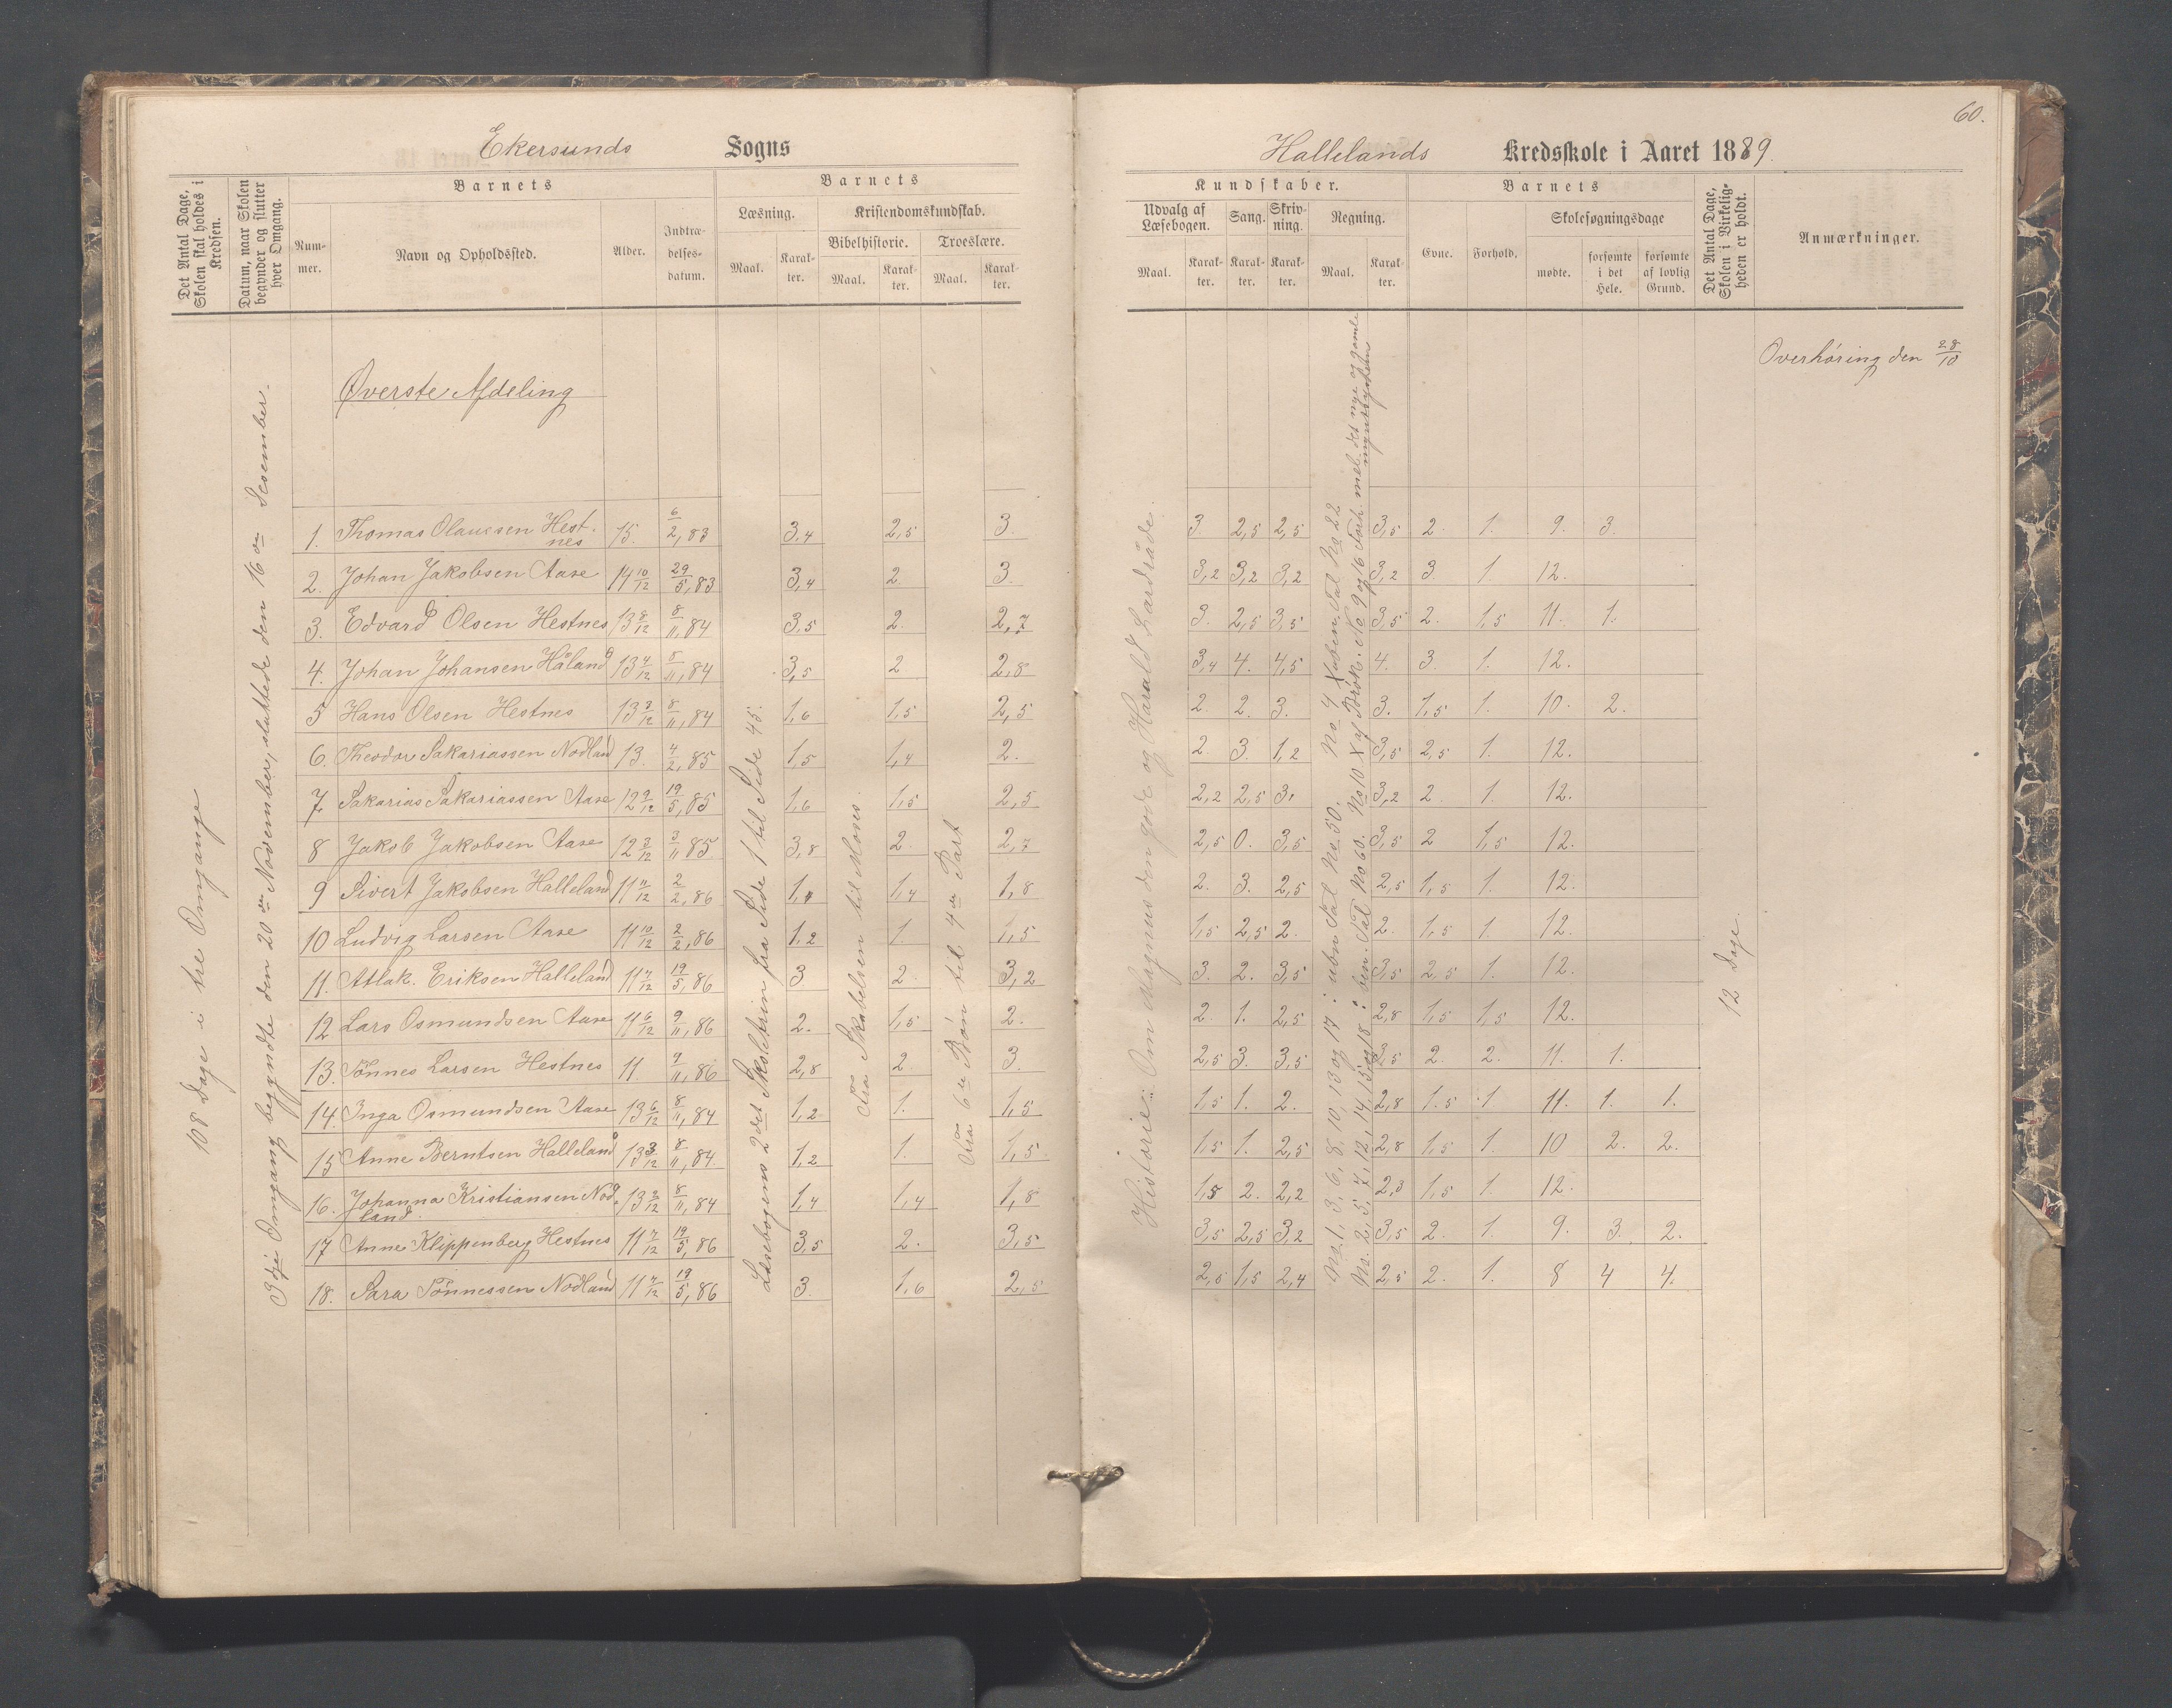 60.
Ekersunds Sogns
Hallelands Kredsskole i Aaret 1889.
Det Antal Dage, Skolen skal holdes i Kredsen.
Datum, naar Skolen begynder og slutter hver Omgang.
Barnets
Nummer.
Navn og Opholdssted.
Alder.
Indtrædelsesdatum.
Barnets
Læsning.
Maal.
Karakter.
Kristendomskundskab.
Bibelhistorie.
Maal.
Karakter.
Troeslære.
Maal.
Karakter.
Kundskaber.
Udvalg af Læsebogen.
Maal.
Karakter.
Sang.
Karakter.
Skrivning.
Karakter.
Regning.
Maal.
Karakter.
Barnets
Evne.
Forhold.
Skolesøgningsdage
mødte.
forsømte i det Hele.
forsømte af lovlig Grund.
Det Antal Dage, Skolen i Virkeligheden er holdt.
Anmærkninger.
Overhøring den 28/10
Øverste Afdeling
108 Dage i tre Omgange
3dje Omgang begyndte den 20de November, sluttede den 16de December.
Læsebogens 2det Skoletrin fra Side 1 til Side 45.
Fra Skabelsen til Moses.
Fra 6te Bøn til 4de Part
Historie: Om Magnus den gode og Harald Hardråde.
No 1, 3, 6, 8, 10, 13 og 17 i ubn Tal No 50. No 4 X uben. Tal No 22
No. 2, 5, 7, 12, 14, 15 og 18 i ben. Tal No 60. No 10 X af Brøk. No 9 og 16 Forh. mel. det nye og gamle myntsystem
12 Dage.
1. Thomas Olausen Hestnes 15. 6/2, 83 3,4 2,5 3. 3 2,5 2,5 3,5 2. 1. 9. 3.
2. Johan Jakobsen Aase 14 10/12 29/5, 83 3,4 2. 3. 3,2 3,2 3,2 3,2 3 1 12.
3. Edvard Olsen Hestnes 13 8/12 8/11, 84 3,5 2. 2,7 3. 2,5 3,5 3,5 2. 1,5 11. 1.
4. Johan Johansen Håland 13 4/12 8/11, 84 3,5 2 2,8 3,4 4. 4,5 4. 3. 1. 12.
5 Hans Olsen Hestnes 13 3/12 8/11, 84 1,6 1,5 2,5 2. 2. 3. 3. 1,5 1. 10. 2.
6. Theodor Sakariassen Nodland 13. 4/2, 85 1,5 1,4 2. 2 3. 1,2 3,5 2,5 1. 12.
7. Sakarias Sakariassen Aase 12 9/12 19/5, 85 1,6 1,5 2,5 2,2 2,5 3. 3,2 2. 1. 12.
8 Jakob Jakobsen Aase 12 3/12 3/11 85 3,8 2. 2,7 2,5 0. 3,5 3,5 2 1,5 12.
9 Sivert Jakobsen Halleland 11 11/12 2/2, 86 1,1 1,4 1,8 2. 3. 2,5 2,5 1,5 1. 12.
10 Ludvig Larsen Aase 11 10/12 2/2, 86 1,2 1. 1,5 1,5 2,5 2. 2. 1,5 1. 12.
11. Atlak. Eriksen Halleland 11 7/12 19/5, 86 3 2. 3,2 3. 2. 3,5 3,5 2,5 1. 12.
12 Lars Osmundsen Aase 11 6/12 9/11, 86 2. 1,5 2. 2. 1. 2,5 2,8 1,5 1,5 12.
13. Tönnes Larsen Hestnes 11. 9/11, 86 2,8 2. 3. 2,5 3. 3,5 3,5 2. 2. 11. 1.
14. Inga Osmundsen Aase 13 6/12 8/11, 84 1,2 1. 1,5 1,5 1. 2. 2,8 1.5 1. 11. 1. 1.
15 Anne Berntsen Halleland 13 3/12 8/11, 84. 1,2 1. 1,5. 1,5 1. 2,5 2,8 1,5 1. 10 2. 2.
16. Johanna Kristiansen Nodland. 13 2/12 8/11, 84 1,4 1,4 1,8 1,5 2. 2,2 2,3 1,5 1. 12.
17 Anne Klippenberg Hestnes 11 7/12 19/5, 86 3,5 2. 3,5 3,5 2,5 3,2 3,5 2. 1. 9. 3. 2.
18. Sara Tönnessen Nodland 11 4/12 19/5, 86 3. 1,6 2,5 2,5 1,5 2,4 2,5 2. 1. 8 4 4.